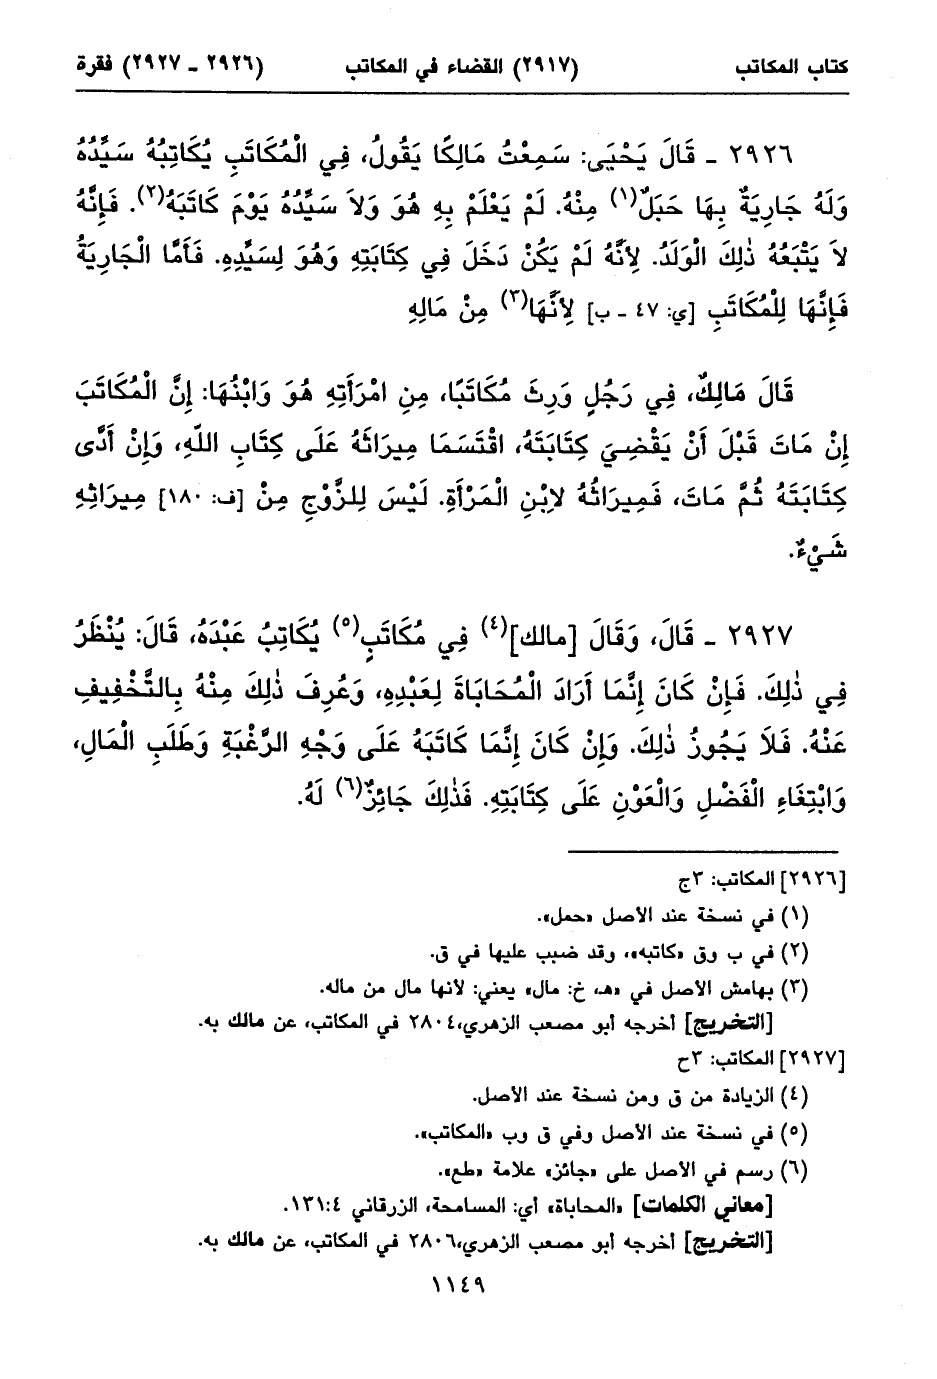 كتاب المكاتب (٢٩١٧) القضاء في المكاتب (٢٩٢٦ ـ ٢٩٢٧) فقرة
٢٩٢٦ ـ قَالَ يَحْيَى: سَمِعْتُ مَالِكًا يَقُولُ، فِي الْمُكَاتَبِ يُكَاتِبُهُ سَيِّدُهُ
وَلَهُ جَارِيَةٌ بِهَا حَبَلٌ(١) مِنْهُ. لَمْ يَعْلَمْ بِهِ هُوَ وَلاَ سَيِّدُهُ يَوْمَ كَاتَبَهُ(٢). فَإِنَّهُ
لاَ يَتْبَعُهُ ذٰلِكَ الْوَلَدُ. لِأَنَّهُ لَمْ يَكُنْ دَخَلَ فِي كِتَابَتِهِ وَهُوَ لِسَيِّدِهِ. فَأَمَّا الْجَارِيَةُ
فَإِنَّهَا لِلْمُكَاتَبِ [ي: ٤٧ ـ ب] لِأَنَّهَا(٣) مِنْ مَالِهِ
قَالَ مَالِكٌ، فِي رَجُلٍ وَرِثَ مُكَاتَبًا، مِنِ امْرَأَتِهِ هُوَ وَابْنُهَا: إِنَّ الْمُكَاتَبَ
إِنْ مَاتَ قَبْلَ أَنْ يَقْضِيَ كِتَابَتَهُ، اقْتَسَمَا مِيرَاثَهُ عَلَى كِتَابِ اللّهِ، وَإِنْ أَدَّى
كِتَابَتَهُ ثُمَّ مَاتَ، فَمِيرَاثُهُ لاِبْنِ الْمَرْأَةِ. لَيْسَ لِلزَّوْجِ مِنْ [ف: ١٨٠] مِيرَاثِهِ
شَيْءٌ.
٢٩٢٧ ـ قَالَ، وَقَالَ [مالك](٤) فِي مُكَاتَبٍ(٥) يُكَاتِبُ عَبْدَهُ، قَالَ: يُنْظَرُ
فِي ذٰلِكَ. فَإِنْ كَانَ إِنَّمَا أَرَادَ الْمُحَابَاةَ لِعَبْدِهِ، وَعُرِفَ ذٰلِكَ مِنْهُ بِالتَّخْفِيفِ
عَنْهُ. فَلاَ يَجُوزُ ذٰلِكَ. وَإِنْ كَانَ إِنَّمَا كَاتَبَهُ عَلَى وَجْهِ الرَّغْبَةِ وَطَلَبِ الْمَالِ،
وَابْتِغَاءِ الْفَضْلِ وَالْعَوْنِ عَلَى كِتَابَتِهِ. فَذٰلِكَ جَائِزٌ(٦) لَهُ.
[٢٩٢٦] المكاتب: ٣ج
(١) في نسخة عند الأصل «حمل».
(٢) في ب وق «كاتبه»، وقد ضبب عليها في ق.
(٣) بهامش الأصل في «هـ، خ: مال» يعني: لأنها مال من ماله.
[التخريج] أخرجه أبو مصعب الزهري،٢٨٠٤ في المكاتب، عن مالك به.
[٢٩٢٧] المكاتب: ٣ح
(٤) الزيادة من ق ومن نسخة عند الأصل.
(٥) في نسخة عند الأصل وفي ق وب «المكاتب».
(٦) رسم في الأصل على «جائز» علامة «طع».
[معاني الكلمات] «المحاباة» أي: المسامحة، الزرقاني ١٣١:٤.
[التخريج] أخرجه أبو مصعب الزهري،٢٨٠٦ في المكاتب، عن مالك به.
١١٤٩